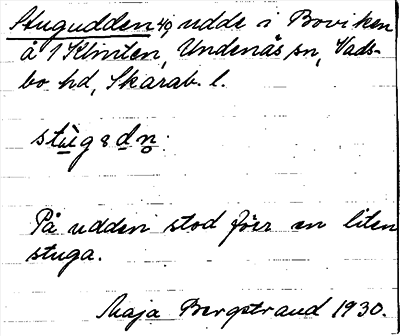 Stugudden 49, udde i Boviken
å 1 Klinten, Undenäs sn, Vads-
bo hd, Skarab. l.
På udden stod förr en liten
stuga.
Maja Bergstrand 1930.